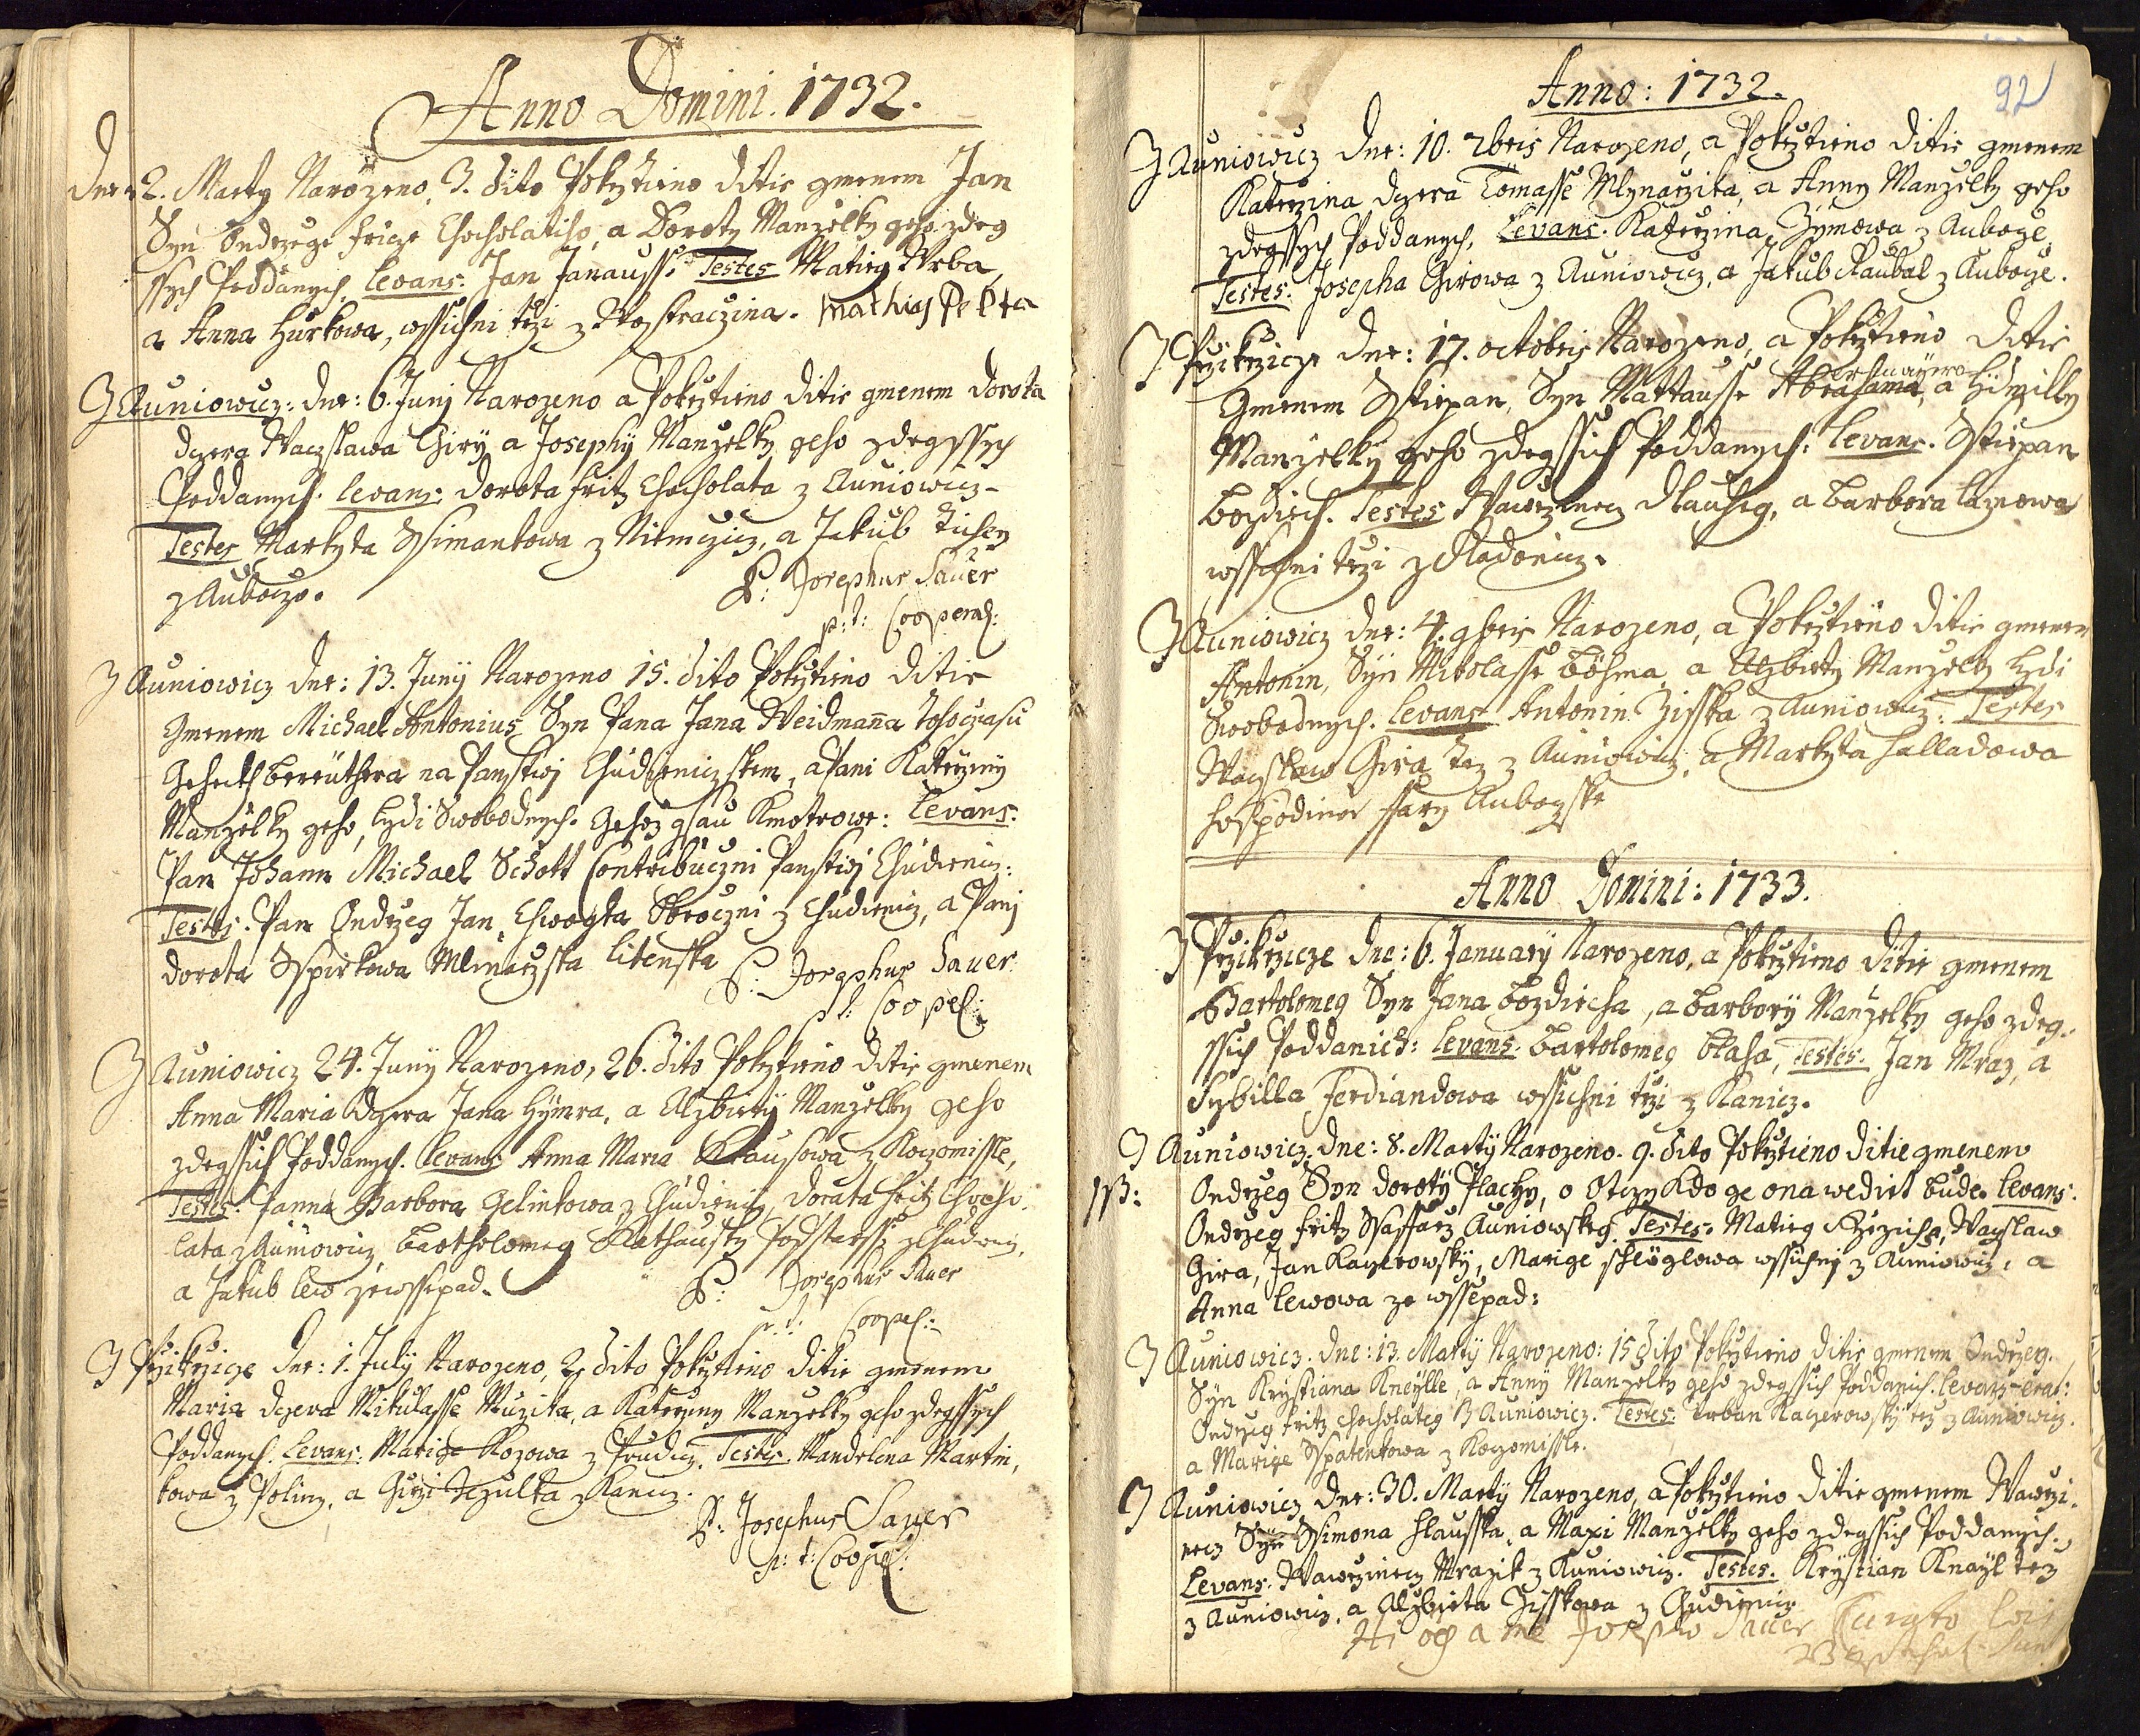 Anno Domini. 1732.
Dne 2. Marty Narozeno, 3. dito Pokrztieno ditie gmenem Jan
Syn Ondrzege fricze Chocholatiho, a Doroty Manzelky geho zdeg
ssych Poddanych, Levans: Jan Janausse Testes Matieg Wrba,
a Anna Hurkowa, wssichni trzi z Mathias Pe
Z Auniowicz: dne: 6. Junij Narozeno a Pokrztieno ditie gmenem Dorota
dczera Waczslawa Girÿ a Josephÿ Manzelky geho zdegssych
Poddanych. Levans: Dorota Fritz Chocholata z Auniowicz
Testes Markyta Ssimankowa z Niemczicz, a Jakub Tichey
z Auboczo.
P: Josephus Sauer
p: t: Cooperat:
Z Auniowicz dne: 13. Junÿ Narozeno 15. dito Pokrztieno ditie
Gmenem Michael Antonius, Syn Pana Jana Weidmana tohoczasu
bereüthera na Panstwj Chudieniczskem, a Pani Katerziny
Manzelky geho, Lydi Swobodnych. Gehoz gsau Kmotrowe: Levans:
Pan Johann Michael Schott Contribuczni Panstwj Chudienicz:
Testes: Pan Ondrzeg Jan Chwogka z Chudienicz, a Panj
Dorota Sspirkowa Mlinarzska Litenska
P: Josephus Sauer
p t: Cooper:
Z Auniowicz 24. Junÿ Narozeno, 26. dito Pokrztieno ditie gmenem
Anna Maria dczera Jana Hÿmra, a Alzbietÿ Manzelky geho
zdegssich Poddanych. Levans Anna Maria Krausowa z Koczomissle,
Testes. Panna Barbora Gelinkowa z Chudienicz, Dorota Fritz Chocho-
lata z Auniowicz, Bartholomeg Rathausky z Chudenicz,
a Jakub Lew zewssepad.
P: Josephus Sauer
p. t: Cooper:
Z Przikrzicze dne: 1. Julÿ Narozeno, 2 dito Pokrztieno ditie gmenem
Maria dczera Mikulasse Muzika, a Katerziny Manzelky geho zdegssych
Poddanych. Levans: Marige Kozowa z Testes. Mandelena Martin,
kowa z Polinz, a Girzi z Kanicz.
P: Josephus Sauer
p: t: Cooper:
92
Anno: 1732.
Z Auniowicz dne: 10. 7bris Narozeno, a Pokrztieno ditie gmenem
Katerzina dczera Tomasse Mlynarzika, a Anny Manzelky geho
zdegssych Poddanych, Levans. Katerzina Zymowa z Auboze
Testes: Josepha Girowa z Auniowicz, a Jakub Raubal z Auboze.
Z Przikrzicze dne: 17. octobris Narozeno, a Pokrztieno ditie
Gmenem Sstiepan, Syn Mattausse Abrahama, a Lidmilly
Manzelky geho zdegssich Poddanych: Levans. Sstiepan
Bozdiech. Testes Wawrzinecz Dlauheg, a Barbora
wssichni trzi z Radonicz.
Z Auniowicz dne: 4. 9bris Narozeno, a Pokrztieno ditie gmenem
Antonin, Syn Mikolasse Böhma, a Alzbiety Manzelky Lydi
Swobodnych. Levans Antonin Zisska z Auniowicz: Testes
Waczslaw Gira tez z Auniowicz, a Markyta Halladowa
hospodinie ffary Aubozske
Anno Domini: 1733.
Z Przikrzicze dne: 6. Januarÿ Narozeno, a Pokrztieno ditie gmenem
Bartolomeg Syn Jana Bozdiecha, a Barborÿ Manzelky geho zdeg-
ssich Poddanich: Levans. Bartolomeg Blaha, Testes: Jan Mraz, a
Sybilla Ferdiandowa wssichni trzi z Kanicz.
Z Auniowicz. dne: 8. Martÿ Narozeno. 9. dito Pokrztieno ditie gmenem
Ondrzeg Syn Dorotÿ Plachy, o Otczy kdo ge ona wediet bude. Levans:
Ondrzeg Fritz Ssaffarz Auniowskeg. Testes. Matieg Waczslaw
Gira, Jan Kayerowsky, Marige Schlöglowa wssichnj z Auniowicz, a
Anna Lewowa ze wssepad:
Z Auniowicz. dne: 13. Martÿ Narozeno: 15 dito Pokrztieno ditie gmenem Ondrzeg.
Syn Krystiana Kneÿlle, a Anny Manzelky geho zdegssich Poddanich. Levans erat:
Ondrzeg Fritz Chocholateg z Auniowicz. Testes: Urban Kayerowskÿ tez z Auniowicz.
a Marige Sspatenkowa z Koczomissle.
Z Auniowicz dne: 30. Martÿ Narozeno, a Pokrztieno ditie gmenem Wawrzi-
necz Syn Ssimona Hlausska, a Maxi Manzelky geho zdegssich Poddanych.
Levans: Wawrzinecz Mrazik z Auniowicz. Testes. Krÿstian Knaÿl tez
z Auniowicz, a Alzbieta Zisskowa z Chudienicz
a me Josepho Sauer Curato